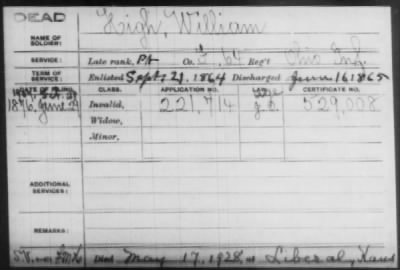 DEAD
NAME OF
SOLDIER:
High, William
SERVICE:
Late rank, Pt Co. I, 64 Reg't Ohio Inf.
TERM OF
SERVICE:
Enlisted Sept. 21, 1864 Discharged June 16 1865
DATE OF FILING.
CLASS.
APPLICATION NO.
LAW.
CERTIFICATE NO.
1876, June 29
Invalid,
221,714
g.l.
529,008
Widow,
Minor,
ADDITIONAL
SERVICES:
REMARKS:
Died May 17, 1928, at Liberal, Kans